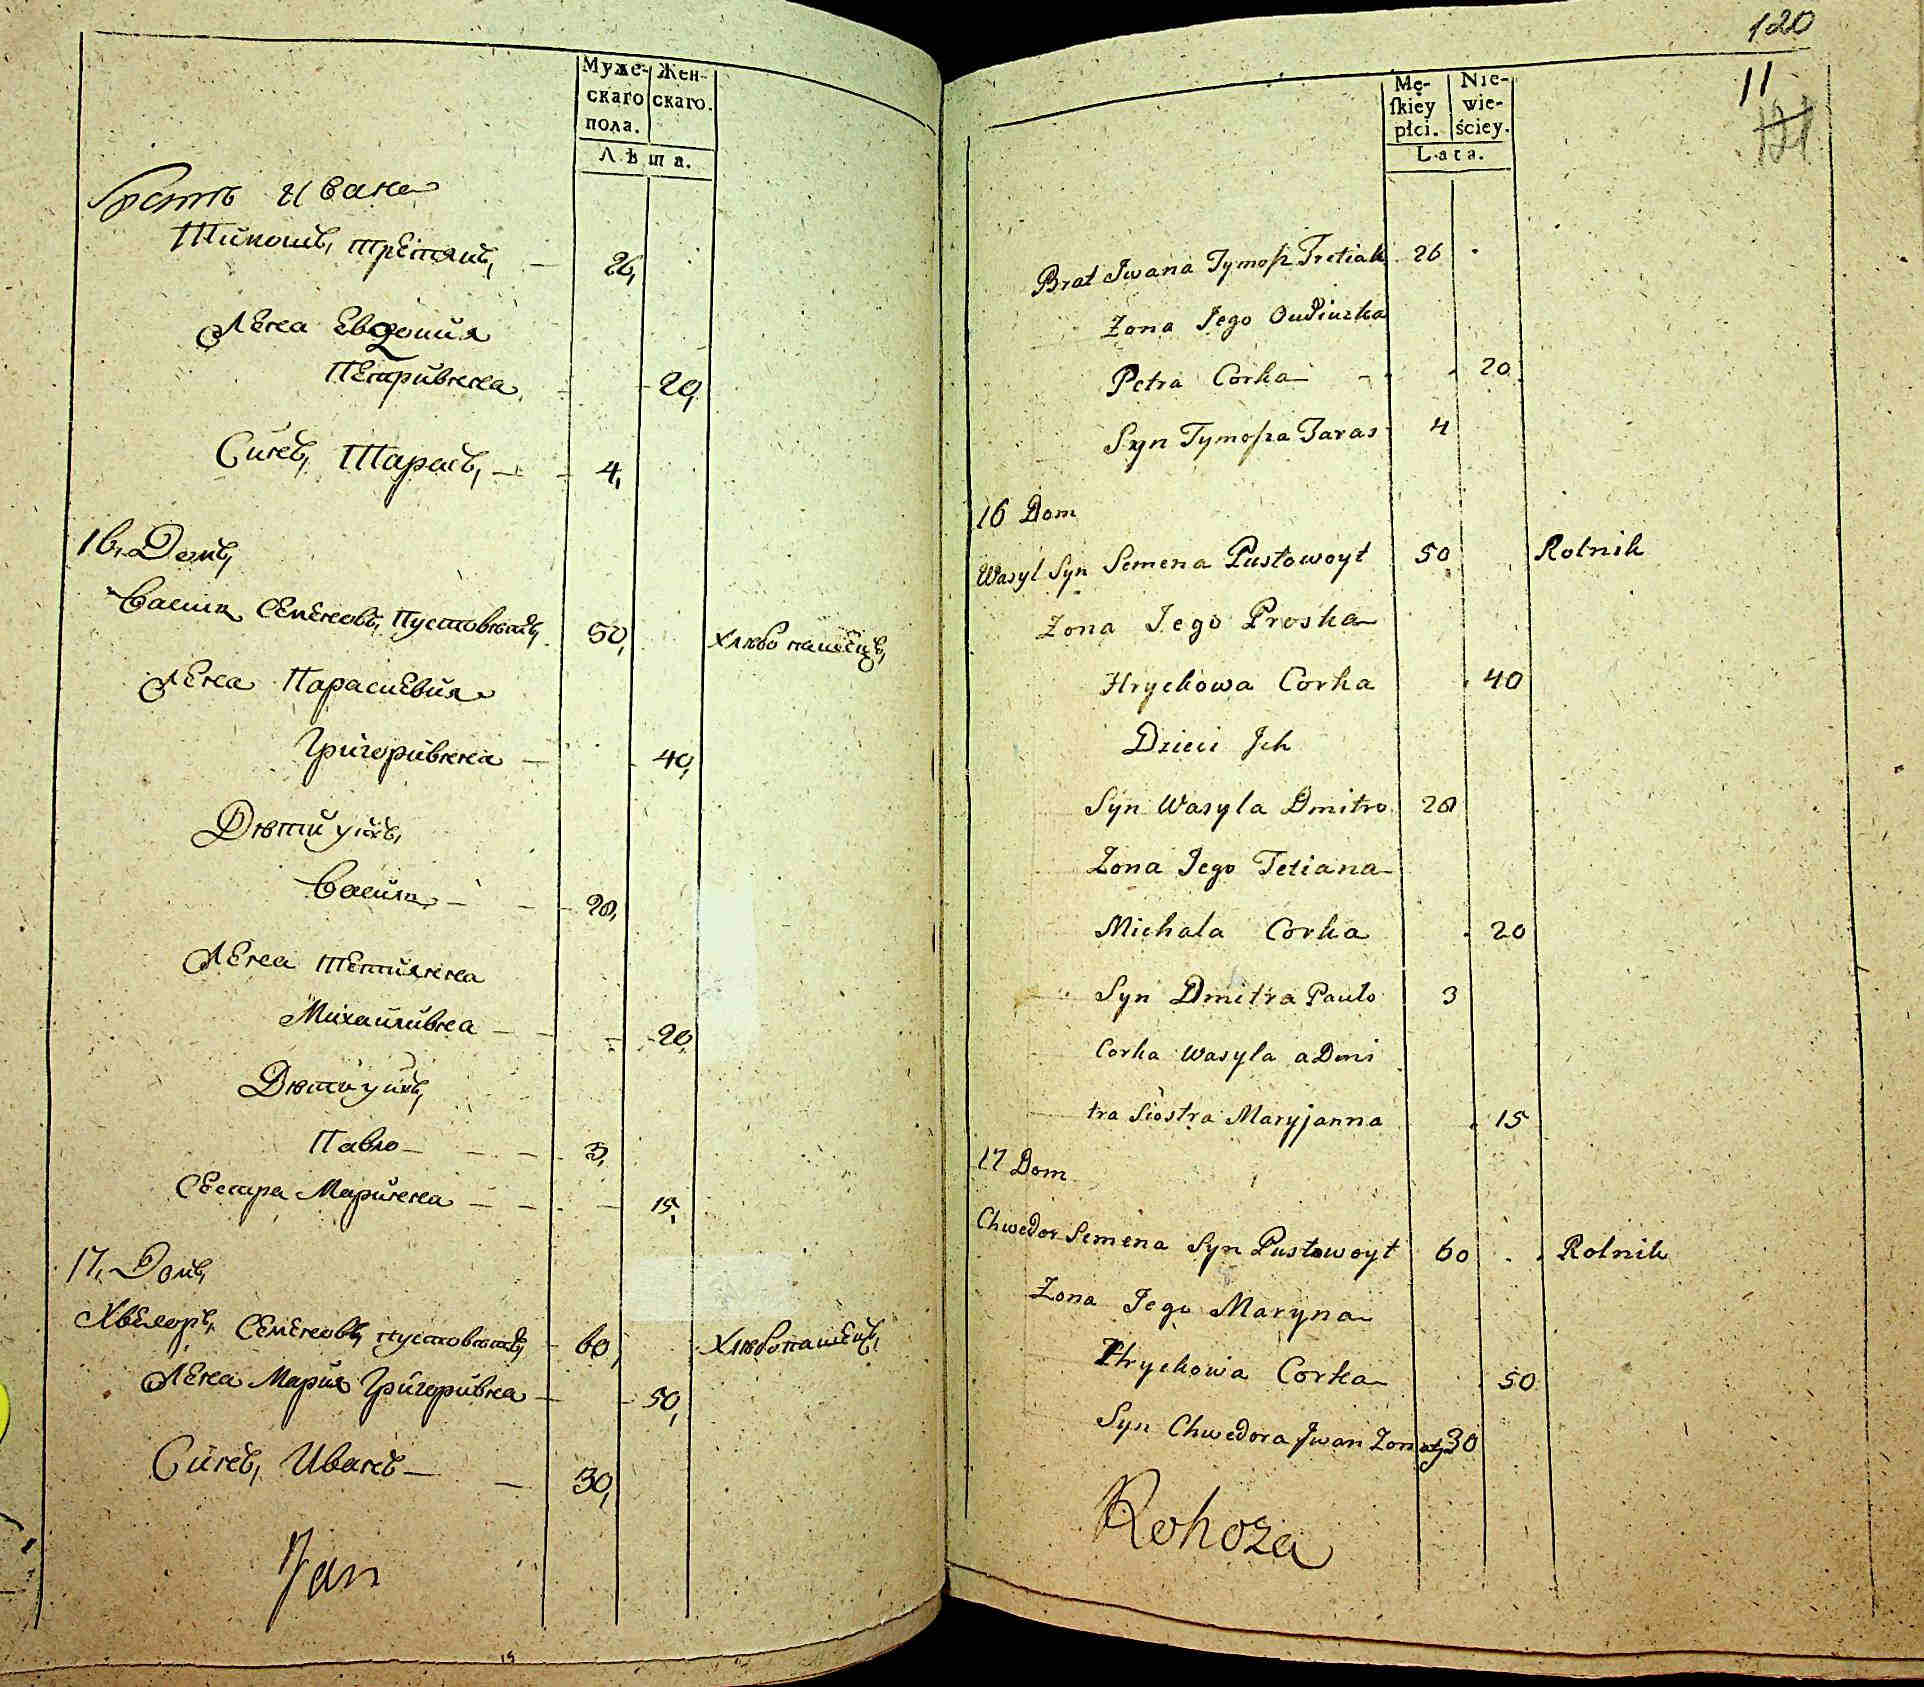 Муже-
скаго
пола.
Жен-
скаго.
Лѣта.
Братъ Ивана
Тимошъ, третякъ, 26,
Жена Евдокия
Петривкна 20,
Синъ, Тарасъ, 4,
16, Домъ,
Василь Семеновъ, Пустовойтъ, 50, Хлѣбопашецъ,
Жена Параскевия
Григоривкна 40,
Дѣти ихъ,
Василь 20,
Жена Тетиянна
Михайливна 20,
Дѣти ихъ,
Павло 3,
Сестра Маринна 15,
17, Домъ,
Хведоръ, Семеновъ, пустовойтъ, 60, Хлѣбопашецъ,
Жена Мария Григоривна 50,
Синъ, Иванъ 30,
Jan
120
11
121
Mę-
ſkiey
płci.
Nie-
wie-
ściey.
Lata.
Brat Jwana Tymosz Tretiak 26
Zona Jego Oudiuzka
Petra Corka 20
Syn Tymosza Taras 4
16 Dom
Wasyl Syn Semena Pustowoyt 50 Rolnik
Zona Jego Proska
Hryckowa Corka 40
Dzieci Jch
Syn Wasyla Dmitro 20
Zona Jego Tetiana
Michala Corka 20
Syn Dmitra Pawlo 3
Corka Wasyla a Dmi
tra Siostra Maryjanna 15
17 Dom
Chwedor Semena Syn Pustowoyt 60 Rolnik
Zona Jego Maryna
Hryckowa Corka 50
Syn Chwedora Jwan 30
Rohoza